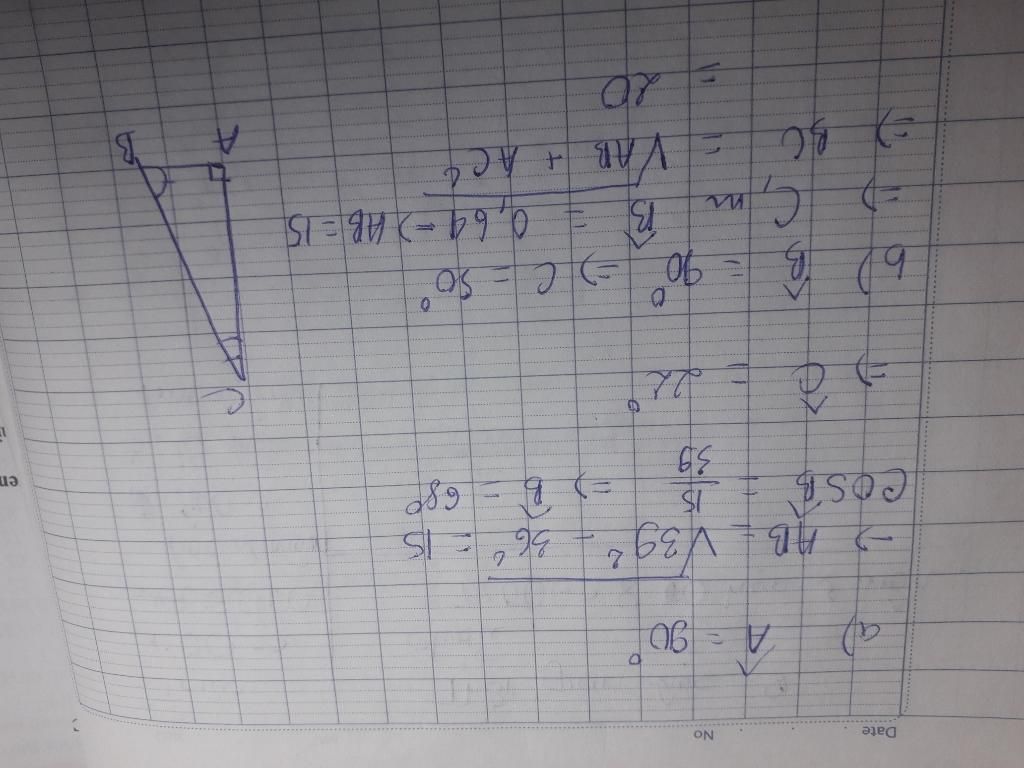 Date No
a) Â = 90°
=> AB = √39² - 36² = 15
COSB̂ = 15/39 => B̂ = 68°
=> Ĉ = 22°
b) B̂ = 90° => C = 50°
=> B̂ = 0,64 => AB = 15
=> BC = √AB + AC²
= 20
C
A
B
en